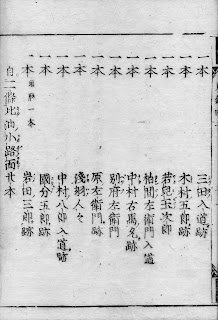 一本 三田入道跡
一本 木村五郎跡
一本 若兒玉次郎
一本 柏間左衛門入道
一本 中村右馬允跡
一本 別府左衛門
一本 原左衛門跡
一本 淺羽人々
一本 中村八郎入道跡
一本 國分五郎跡
一本 一本 岩田三郎跡
自二條北油小路面廿本